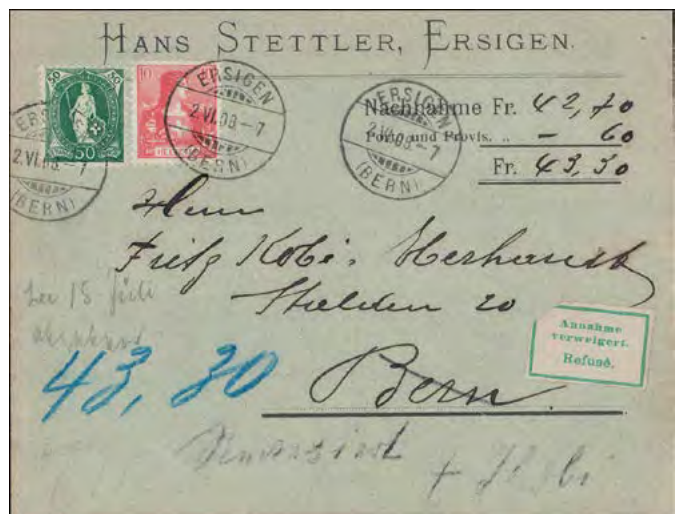 HANS STETTLER, ERSIGEN.
50 50
50
10
ERSIGEN
2.VI.09-7
(BERN)
ERSIGEN
2.VI.09-7
(BERN)
ERSIGEN
2.VI.09-7
(BERN)
Nachnahme Fr. 42,70
Porto und Provis. „ – 60
Fr. 43,30
Herrn
Fritz Kobi
Stalden 20
Annahme
verweigert.
Refusé.
Bern
43,30